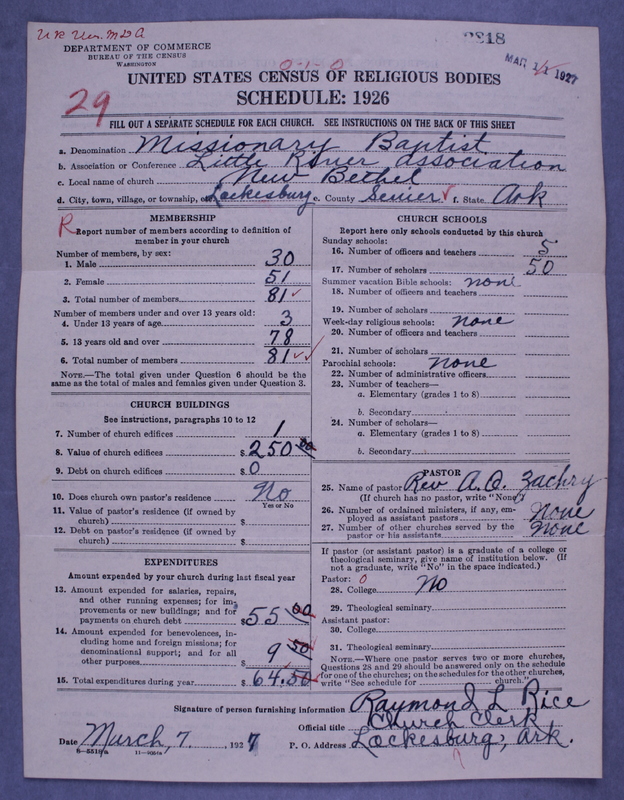 DEPARTMENT OF COMMERCE
BUREAU OF THE CENSUS
WASHINGTON
MAR 1927
UNITED STATES CENSUS OF RELIGIOUS BODIES
SCHEDULE: 1926
29
FILL OUT A SEPARATE SCHEDULE FOR EACH CHURCH. SEE INSTRUCTIONS ON THE BACK OF THIS SHEET
a. Denomination Missionary Baptist
b. Association or Conference Little River association
c. Local name of church New Bethel
d. City, town, village, or township, or Lockesburg e. County Sevier f. State Ark
MEMBERSHIP
R
Report number of members according to definition of
member in your church
Number of members, by sex:
1. Male 30
2. Female 51
3. Total number of members 81
Number of members under and over 13 years old:
4. Under 13 years of age 3
5. 13 years old and over 78
6. Total number of members 81
NOTE.—The total given under Question 6 should be
the same as the total of males and females given under Question 3.
CHURCH BUILDINGS
See instructions, paragraphs 10 to 12
7. Number of church edifices 1
8. Value of church edifices $250.00
9. Debt on church edifices $0
10. Does church own pastor's residence No
Yes or No
11. Value of pastor's residence (if owned by
church) $
12. Debt on pastor's residence (if owned by
church) $
EXPENDITURES
Amount expended by your church during last fiscal year
13. Amount expended for salaries, repairs,
and other running expenses; for im-
provements or new buildings; and for
payments on church debt $55 00
14. Amount expended for benevolences, in-
cluding home and foreign missions; for
denominational support; and for all
other purposes 9 50
15. Total expenditures during year $64.50
CHURCH SCHOOLS
Report here only schools conducted by this church
Sunday schools:
16. Number of officers and teachers 5
17. Number of scholars 50
Summer vacation Bible schools: none
18. Number of officers and teachers
19. Number of scholars
Week-day religious schools: none
20. Number of officers and teachers
21. Number of scholars
Parochial schools: none
22. Number of administrative officers
23. Number of teachers—
a. Elementary (grades 1 to 8)
b. Secondary
24. Number of scholars—
a. Elementary (grades 1 to 8)
b. Secondary
PASTOR
25. Name of pastor Rev A. O. Zachry
(If church has no pastor, write "None")
26. Number of ordained ministers, if any, em-
ployed as assistant pastors None
27. Number of other churches served by the
pastor or his assistants None
If pastor (or assistant pastor) is a graduate of a college or
theological seminary, give name of institution below. (If
not a graduate, write "No" in the space indicated.)
Pastor: 0
28. College No
29. Theological seminary
Assistant pastor:
30. College
31. Theological seminary
NOTE.—Where one pastor serves two or more churches,
Questions 28 and 29 should be answered only on the schedule
for one of the churches; on the schedules for the other churches,
write "See schedule for church."
Signature of person furnishing information Raymond L Rice
Official title Church Clerk
Date March, 7 , 1927 P. O. Address Lockesburg, Ark.